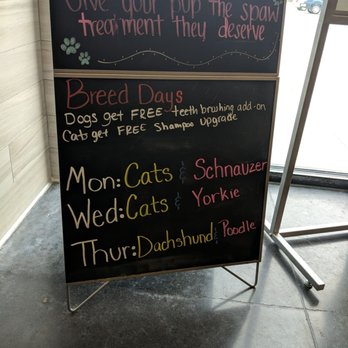 Give your pup the spaw
treatment they deserve
Breed Days
Dogs get FREE teeth brushing add-on
Cats get FREE Shampoo Upgrade
Mon: Cats & Schnauzer
Wed: Cats & Yorkie
Thur: Dachshund & Poodle